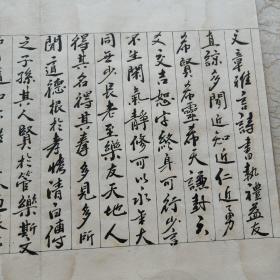 文章雅言詩書執禮益友
直諒多聞近知近仁近勇
希賢希聖希天謙卦六
爻皆吉恕字終身可行少言
不生閒氣靜修可以永年夫
同無少長老至樂友天地人
得其名得其壽多見多所
聞道德根於孝情清白傳
之子孫其人賢於管樂斯文